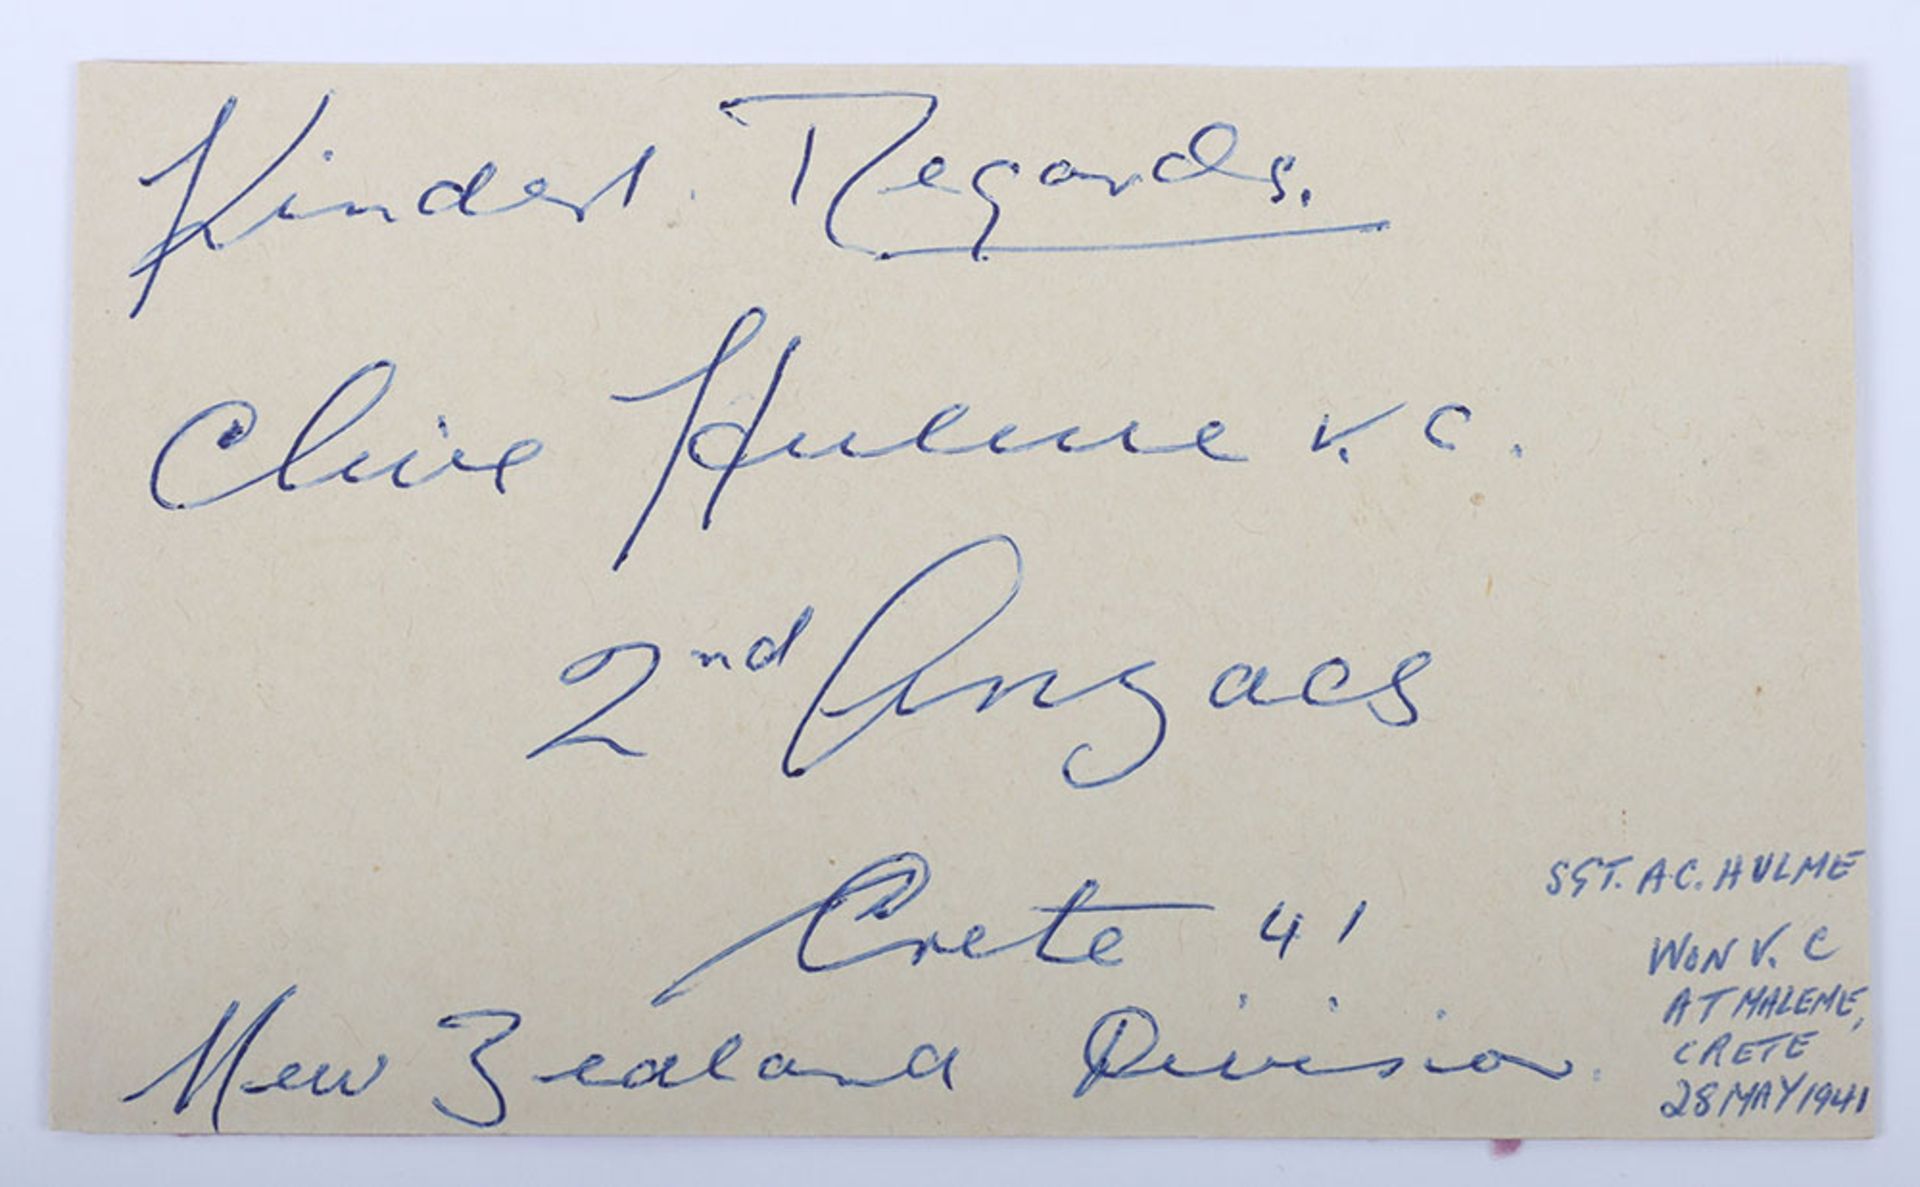 Kindest Regards.
Clive Hulme V.C.
2nd Anzacs
Crete 41
New Zealand Division.
SGT. A.C. HULME
WON V.C
AT MALEME,
CRETE
28 MAY 1941